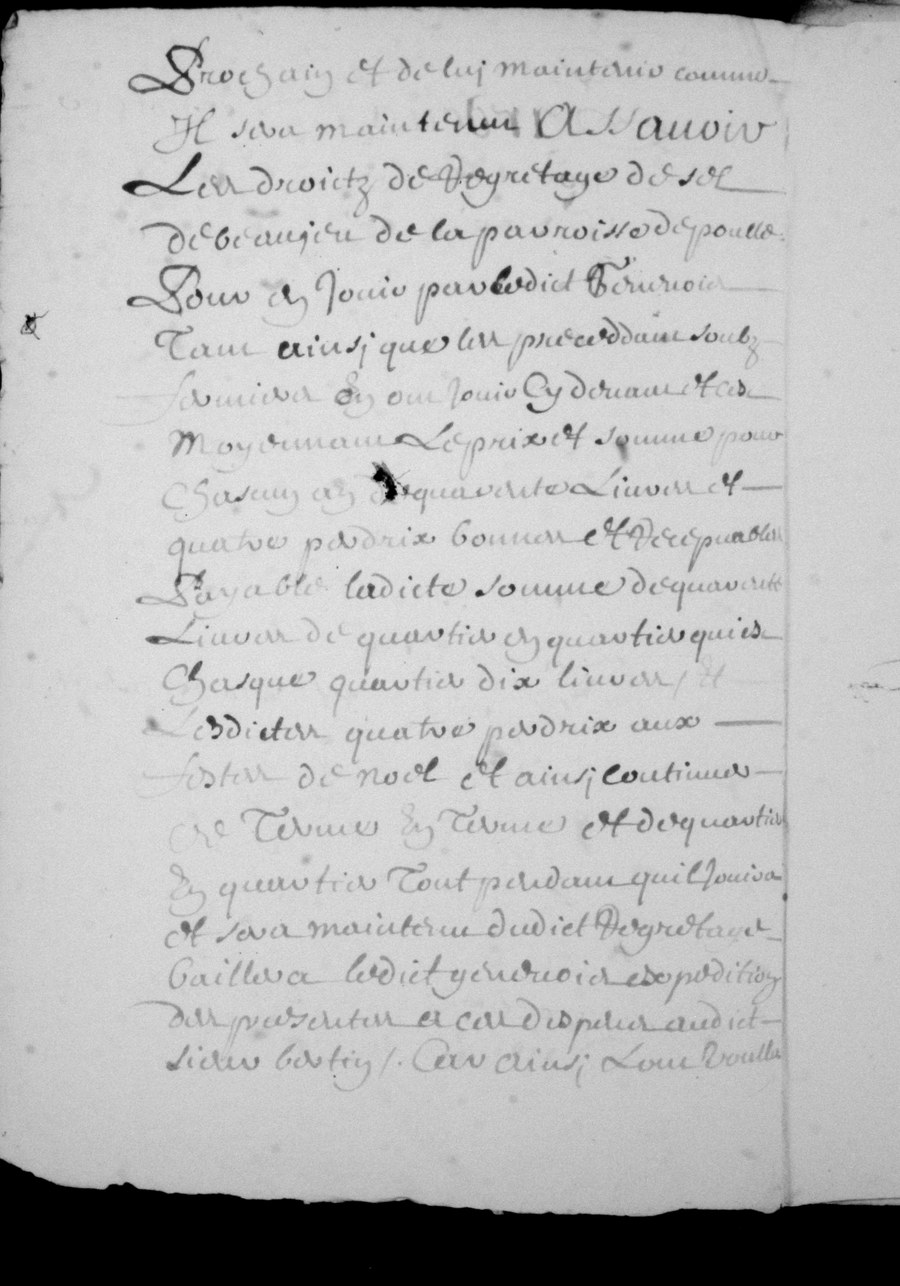 Prochain et de luj maintenir comme
Il sera maintenu Assauoir
Les droictz de Regretage de sel
de beaujeu de la parroisse de poulle
Pour en Jouir par ledict
Tant ainsj que les preceddant soubz
fermiers En ont Jouir Cy deuant et ce
Moyennant Le prix et somme pour
Chascun an de quarente Liures et
quatre perdrix bonnes et Recepuables
Payable ladicte somme de quarente
Liures de quartier en quartier qui est
Chasque quartier dix liures / Et
Lesdictes quatre perdrix aux
festes de noel et ainsj continuer
de Terme En Terme et de quartier
En quartier Tout pendant quil Jouira
et sera maintenu dudict Regretage
baillera ledict generoier expedition
des presentes a ces despens audict
sieur bertin /. Car ainsj Lont Voullu